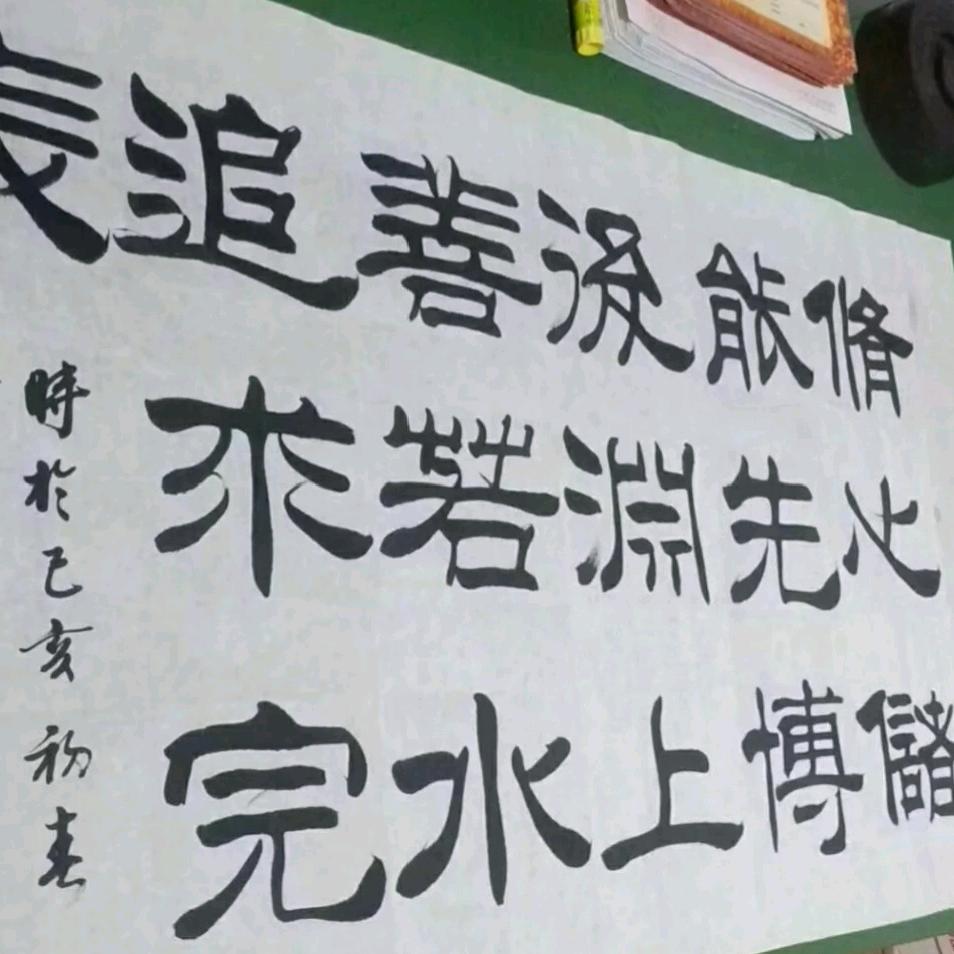 脩心儲
能先博
後淵上
善若水
追求完
時於己亥初春